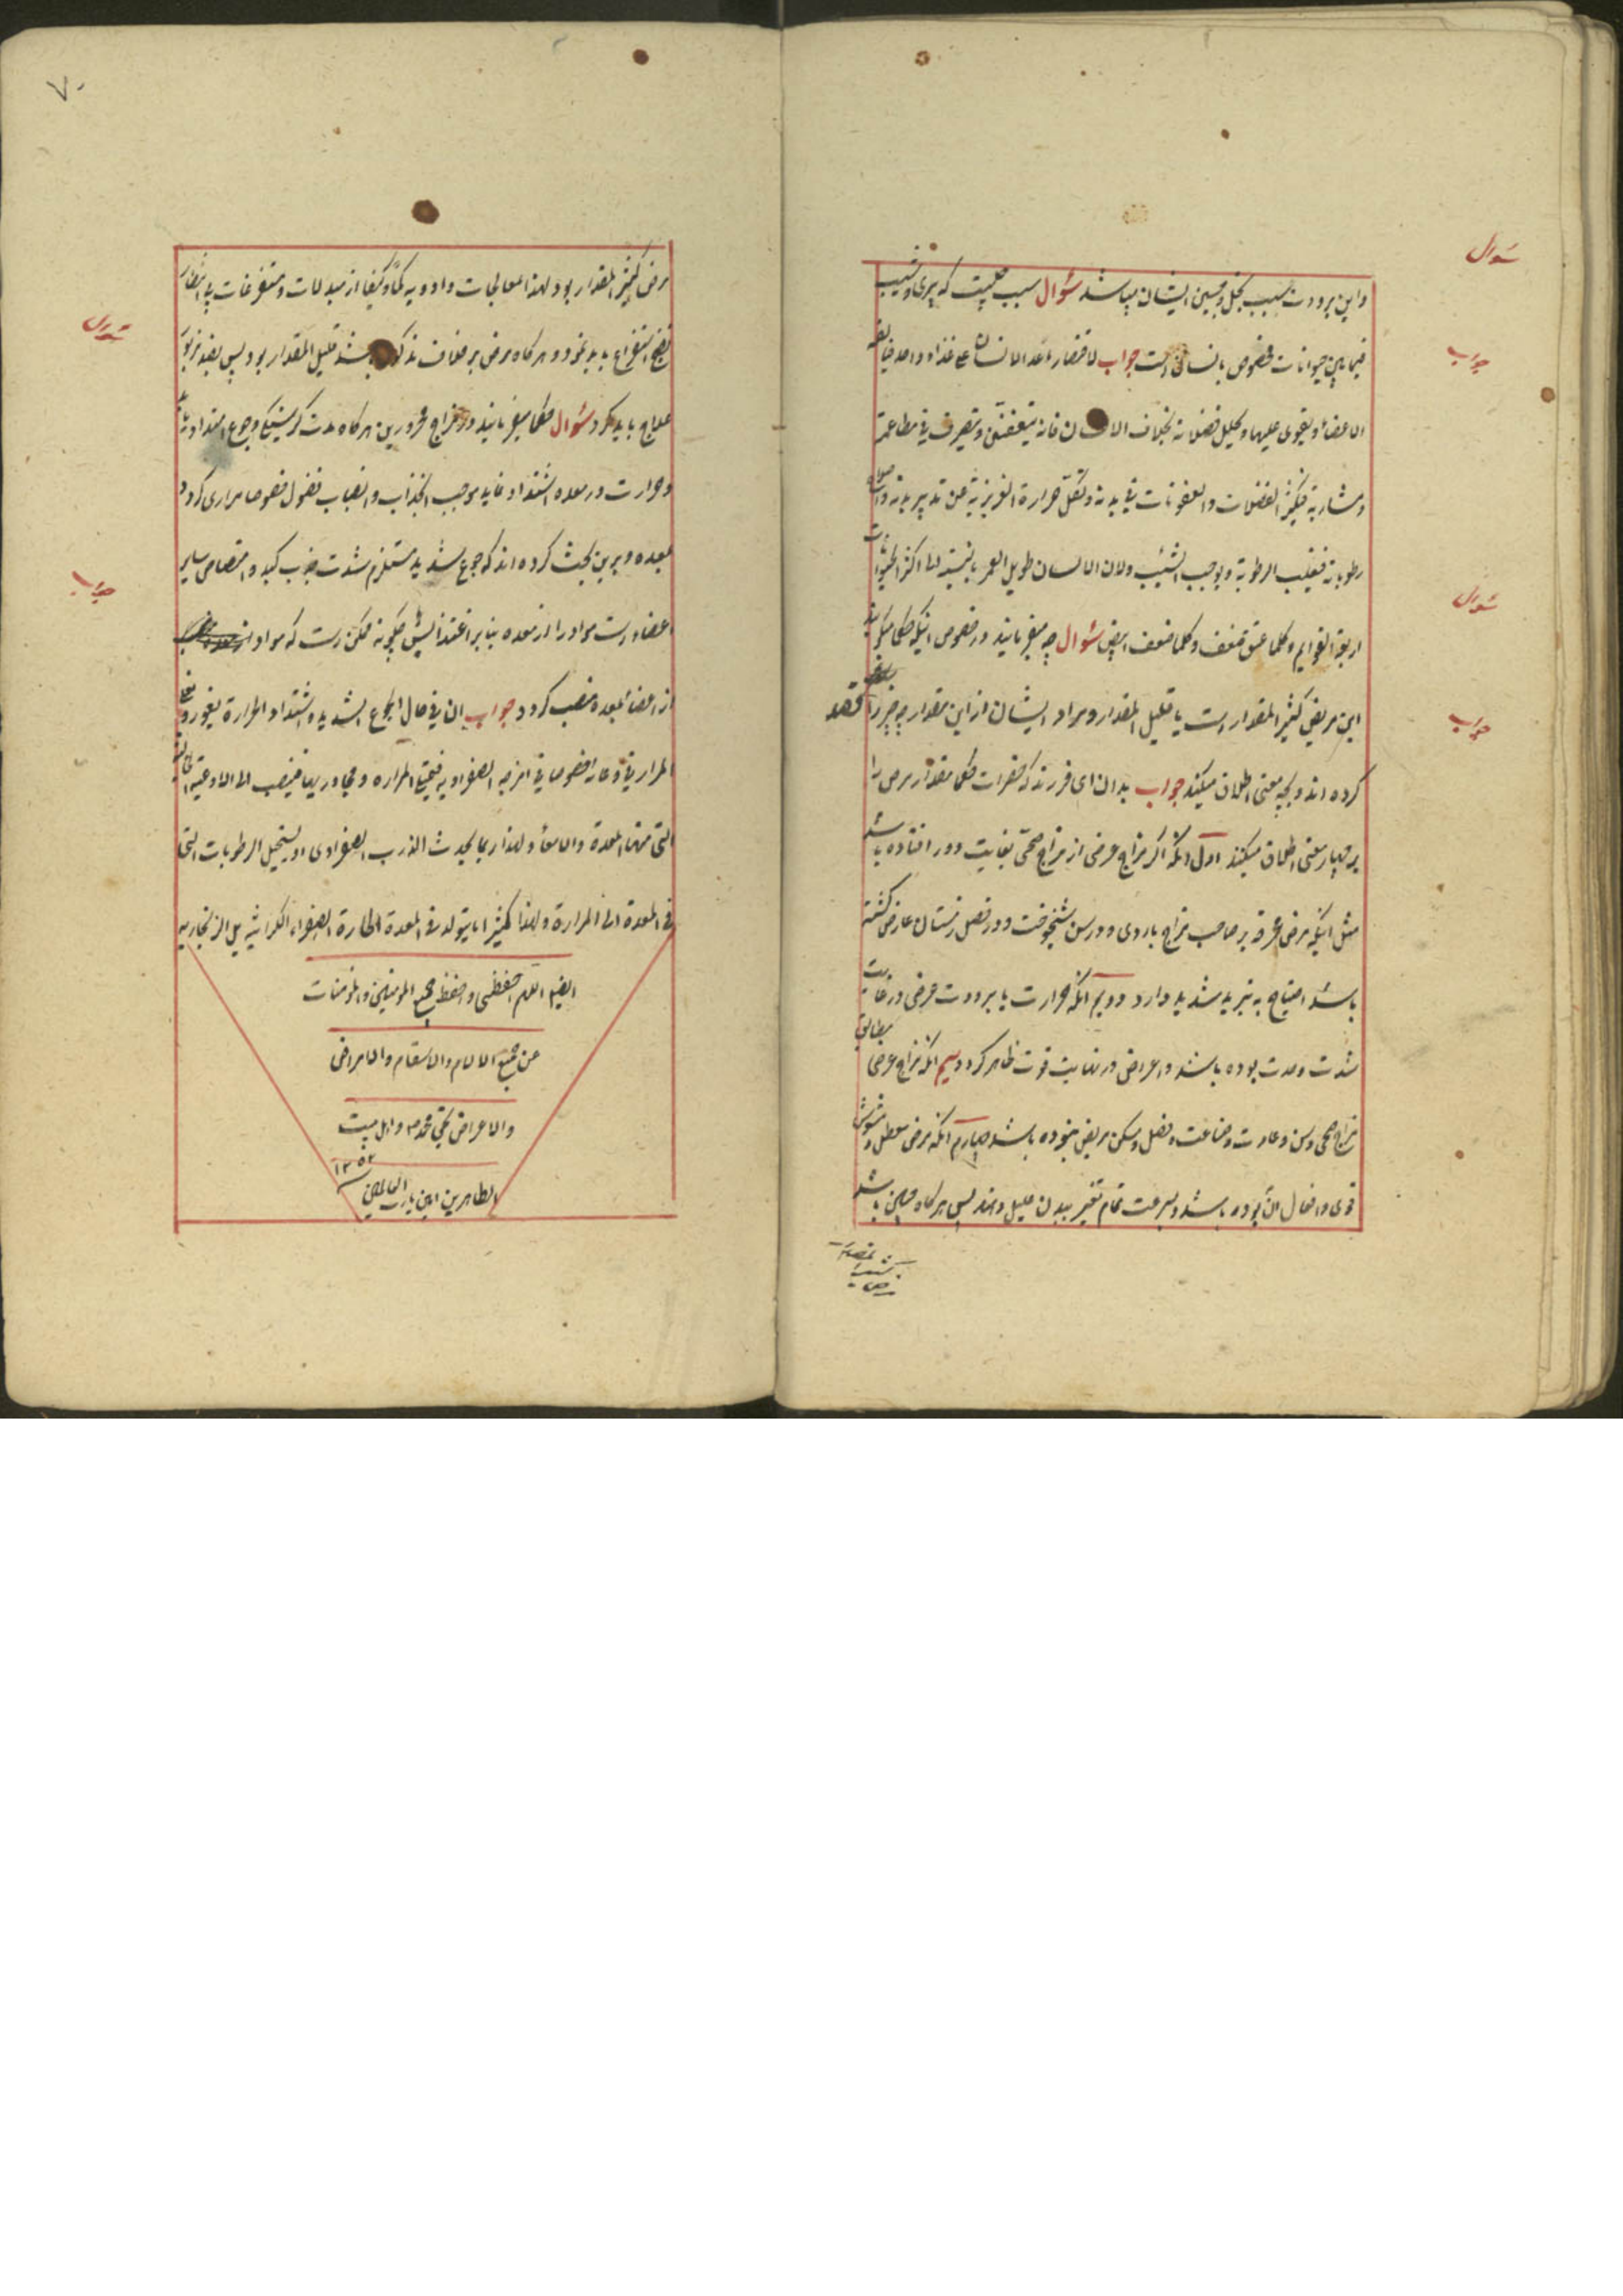 سؤال
واین برودت سبب بخل و جبن ایشان میباشد سؤال سبب چیست که پیری و شیب
جواب
فیما بین حیوانات مخصوص بانسان است جواب لاقتصار ماعدا الانسان علی غذاء واحد
الاعضاء و یقوی علیها و تحلیل فضلاته بخلاف الانسان فانه یتفنن و یتصرف فی مطاعمه
و مشاربه فیکثر الفضلات و العفونات فی بدنه و تقل حرارة الغریزیة عن تدبیر بدنه و
رطوباته فیغلب الرطوبة و یوجب الشیب و لان الانسان طویل العمر بالنسبة الی اکثر الحیوانات
سؤال
اربعة القوایم و کلما عتق ضعف و کلما ضعف ابیض سؤال چه میفرمایند در خصوص اینکه حکما میگویند
جواب
این مرض کثیر المقدار است یا قلیل المقدار و مراد ایشان از این مقدار چه چیز را قصد
کرده اند و بچه معنی اطلاق میکنند جواب بدان ای فرزند که حضرات حکما مقدار مرض را
بر چهار معنی اطلاق میکنند اول آنکه اگر مزاج عرضی از مزاج صحی بغایت دور افتاده باشد
مثل اینکه مرض محرقه بر صاحب مزاج باردی و در سن شیخوخت و در فصل زمستان عارض گشته
باشد احتیاج به تبرید شدید دارد دویم آنکه حرارت یا برودت مرض در غایت
شدت و حدت بوده باشد و اعراض در نهایت قوت ظاهر گردد سیم آنکه مزاج عرضی مطابق
مزاج صحی و سن و عادت و صناعت و فصل و مسکن مریض نبوده باشد چهارم آنکه مرض معطل و مشوش
قوی و افعال آن بوده باشد و بسرعت تمام تغییر ببدن علیل دهد پس هرگاه چنین باشد
۷۰
مرض کثیر المقدار بود لهذا معالجات و ادویه کما و کیفا از مبدلات و مستفرغات بی انتظار
سؤال
نضج استفراغ باید نمود و هرگاه مرض بر خلاف مذکور باشد قلیل المقدار بود پس بقدر مزبور
علاج باید کرد سؤال حکما میفرمایند در مزاج محرورین هرگاه مدت گرسنگی و جوع امتداد یابد
و حرارت در معده اشتداد نماید موجب انجذاب و انصباب فضول خصوصا مراری گردد
جواب
بمعده و برین بحث کرده اند که جوع شدید مستلزم شدت جذب کبد و امتصاص سایر
اعضاء است مواد را از معده بنا بر اغتذا پس چگونه ممکن است که مواد
از اعضا بمعده منصب گردد جواب ان فی حال الجوع الشدید و اشتداد الحرارة یفور
المرار فی وعائه خصوصا فی امزجه الصفراویه فیمتلئ المراره و مجاوریها فینصب الی الاوعیة
التی منها المعدة و الامعاء و لهذا ربما یحدث الذرب الصفراوی او یستحیل الرطوبات التی
فی المعدة الی المرارة و لهذا کثیرا ما یتولد فی المعدة الحارة الصفراء الکراثیه بل الزنجاریه
ایضا اللهم احفظنی و احفظ جمیع المؤمنین و المؤمنات
من جمیع الالام و الاسقام و الامراض
و الاعراض بحق محمد و اهل بیت
الطاهرین امین یا رب العالمین
۱۲۵۲